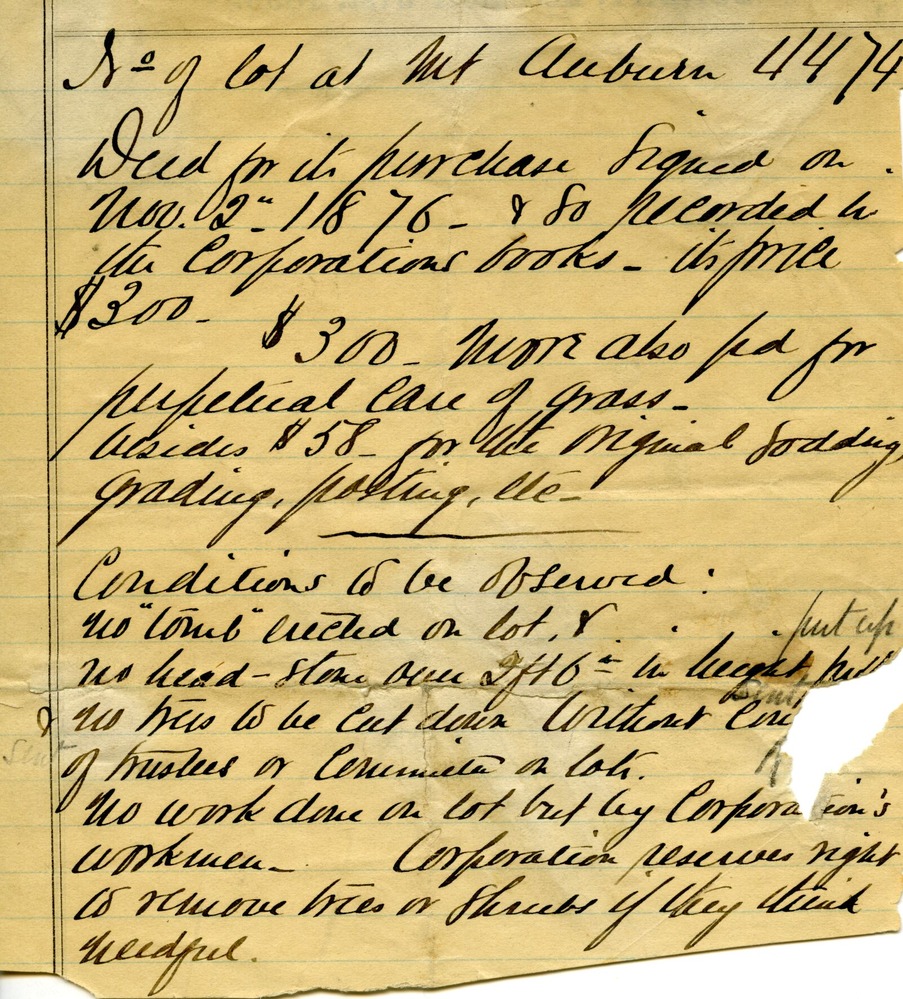 No of lot at Mt Auburn 4474
Deed for its purrchase signed on
Nov. 2" - 1876 - & so recorded in
the Corporations books - its price
$300 -
$300 - more also pd for
perpetual care of grass -
besides $58 - for the original sodding,
grading, posting, etc -
Conditions to be observed :
no "tomb" erected on lot, &
put up
no head-stone over 2ft 6in in height
& no trees to be cut down without con
sent
of trustees or Committee on lots.
no work done on lot but by Corporation's
workmen - Corporation reserves right
to remove trees or shrubs if they think
needful.